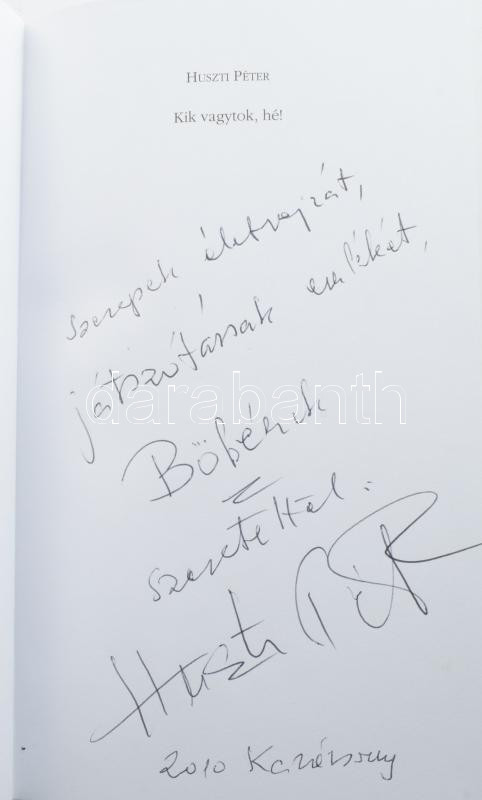 HUSZTI PÉTER
Kik vagytok, hé!
szerepek életrajzát,
játszótársak emlékét,
Böbének
szeretettel:
Huszti Péter
2010 Karácsony
darabanth